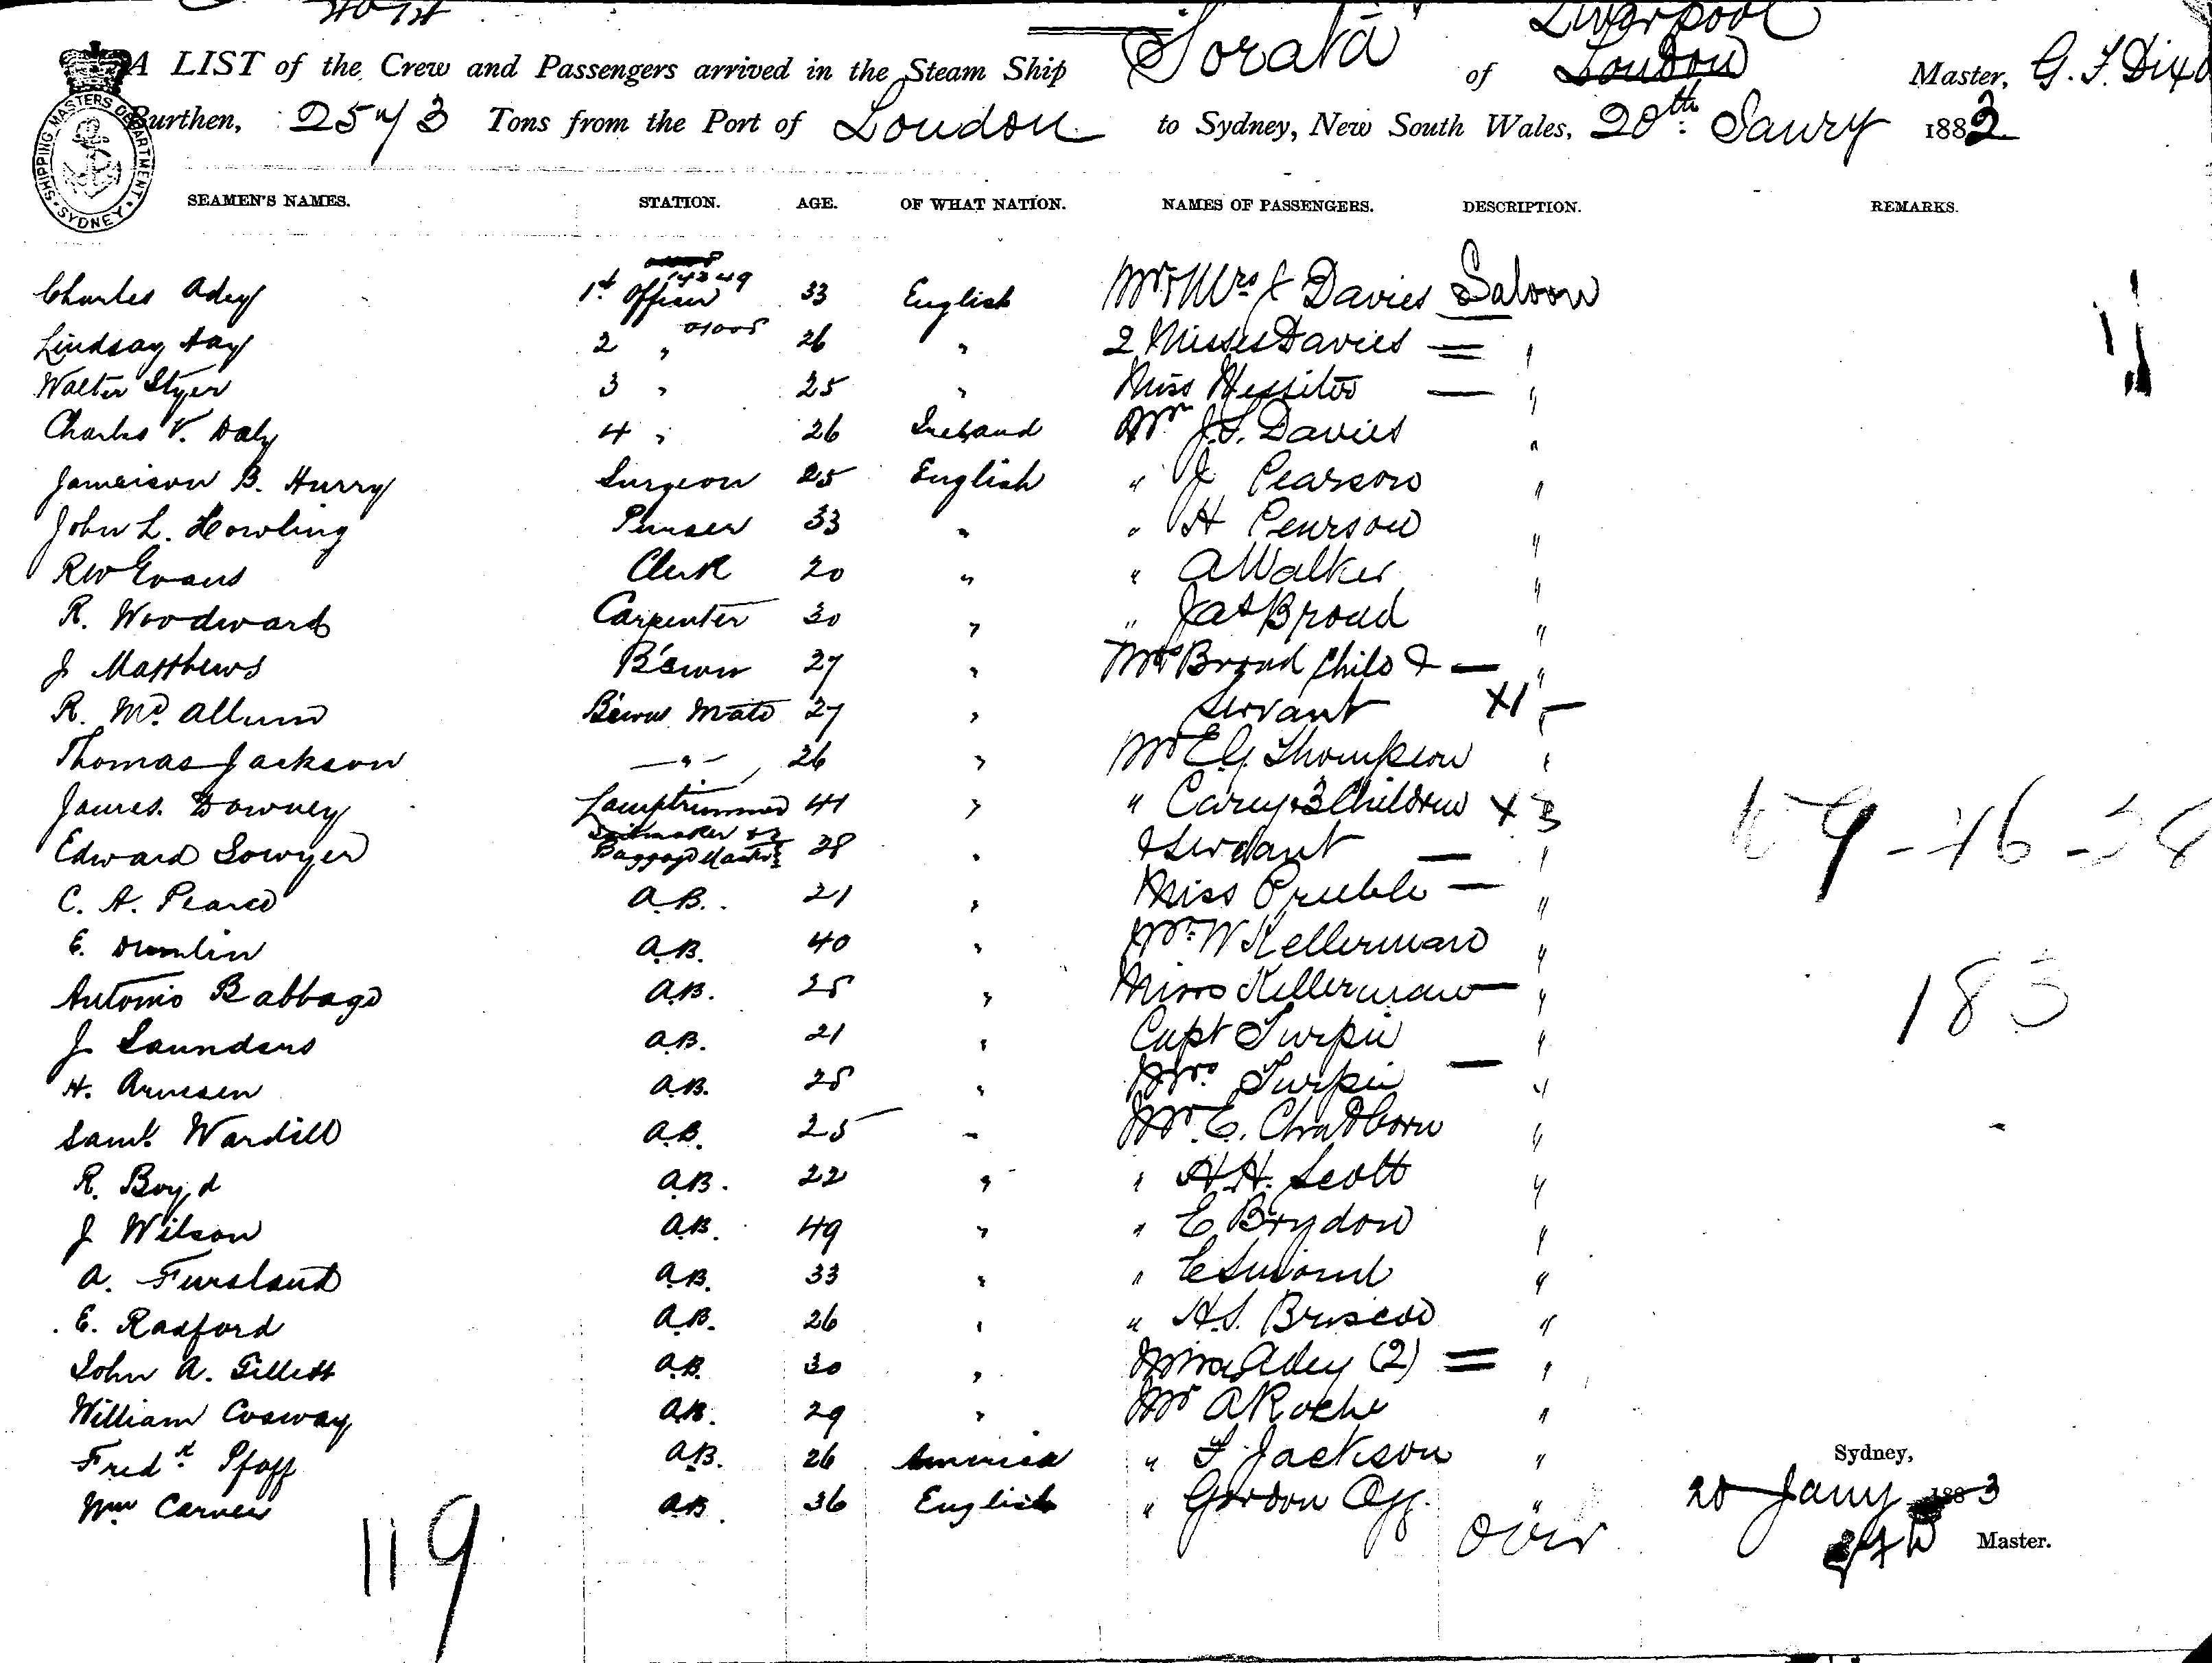 "Sorata" Liverpool
A LIST of the Crew and Passengers arrived in the Steam Ship of London Master, G. F. Dixo
Burthen, 2573 Tons from the Port of London to Sydney, New South Wales, 20th Janry 1883
SHIPPING MASTERS DEPARTMENT SYDNEY
SEAMEN'S NAMES. STATION. AGE. OF WHAT NATION. NAMES OF PASSENGERS. DESCRIPTION. REMARKS.
Charles Adey 1st Officer 33 English Mr & Mrs J Davies Saloon
Lindsay Hay 2 " 26 " 2 Misses Davies = "
Walter Styer 3 " 25 " Miss — "
Charles V. Daly 4 " 26 Ireland Mr J.S. Davies "
Jameison B. Hurry Surgeon 25 English " J Pearson "
John L. Howling Purser 33 " " H Pearson "
RW Evans Clerk 20 " " A Walker "
R. Woodward Carpenter 30 " " Jas Broad "
J Matthews B'swn 27 " Mrs Broad Child & — "
R. Mc Allum B'swns Mate 27 " Servant X1 —
Thomas Jackson — " — 26 " Mr E.G. Thompson "
James Downey Lamptrimmer 41 " " Cary & 3 Children X 3
Edward Sowyer Sailmaker & Baggage Master 28 " & Servant — "
C. A. Pearce A.B. 21 " Miss — "
E. A.B. 40 " Mr W Kellerman "
Antonio Babbage A.B. 25 " Miss Kellerman — "
J. Saunders A.B. 21 " Capt Turpin "
H. Arnesen A.B. 25 " Mrs Turpin — "
Saml. Wardill A.B. 25 " Mr E. "
R. Boyd A.B. 22 " " H.H. Scott "
J Wilson A.B. 49 " " E Brydon "
A. Fursland A.B. 33 " " E "
E. Radford A.B. 26 " " H.S. Briscoe "
John A. Gillett A.B. 30 " Adey (2) = "
William Cosway A.B. 29 " Mr A Roche "
Fredk Pfaff A.B. 26 America " F Jackson "
Wm Carver A.B. 36 English " Gordon "
183
119
over
Sydney,
20 Jany 1883
Master.